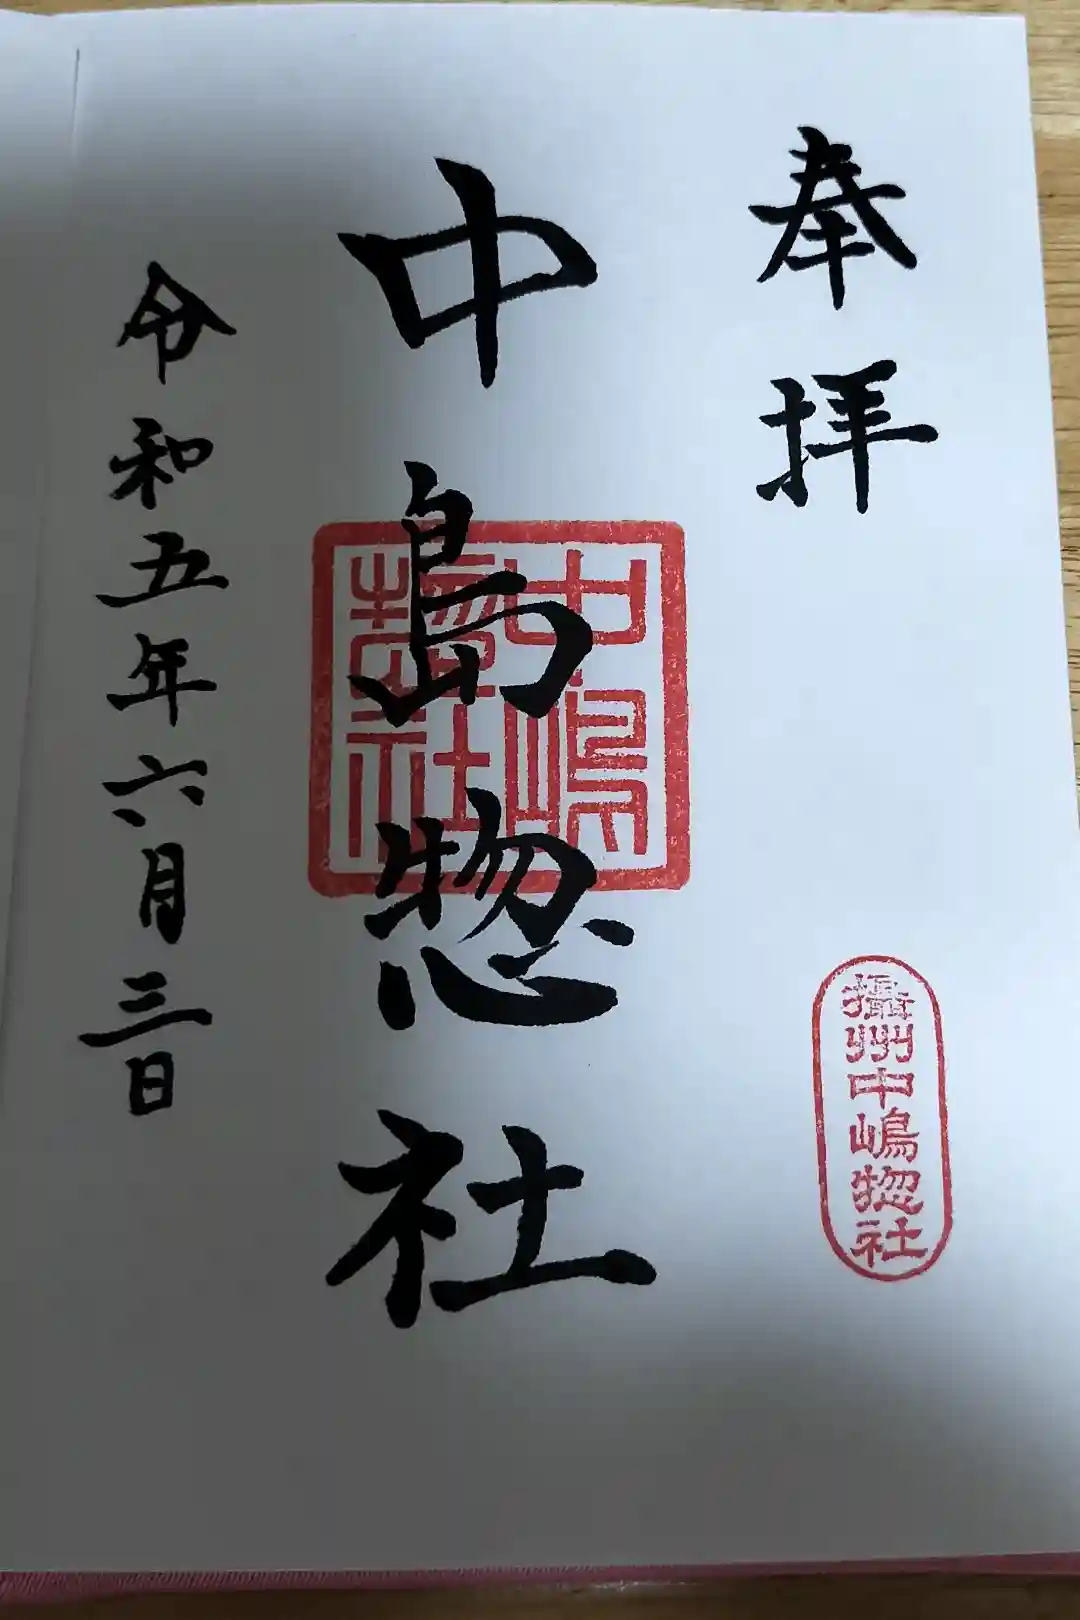 奉拝
攝州中嶋惣社
中島惣社
中嶋
惣社
令和五年六月三日